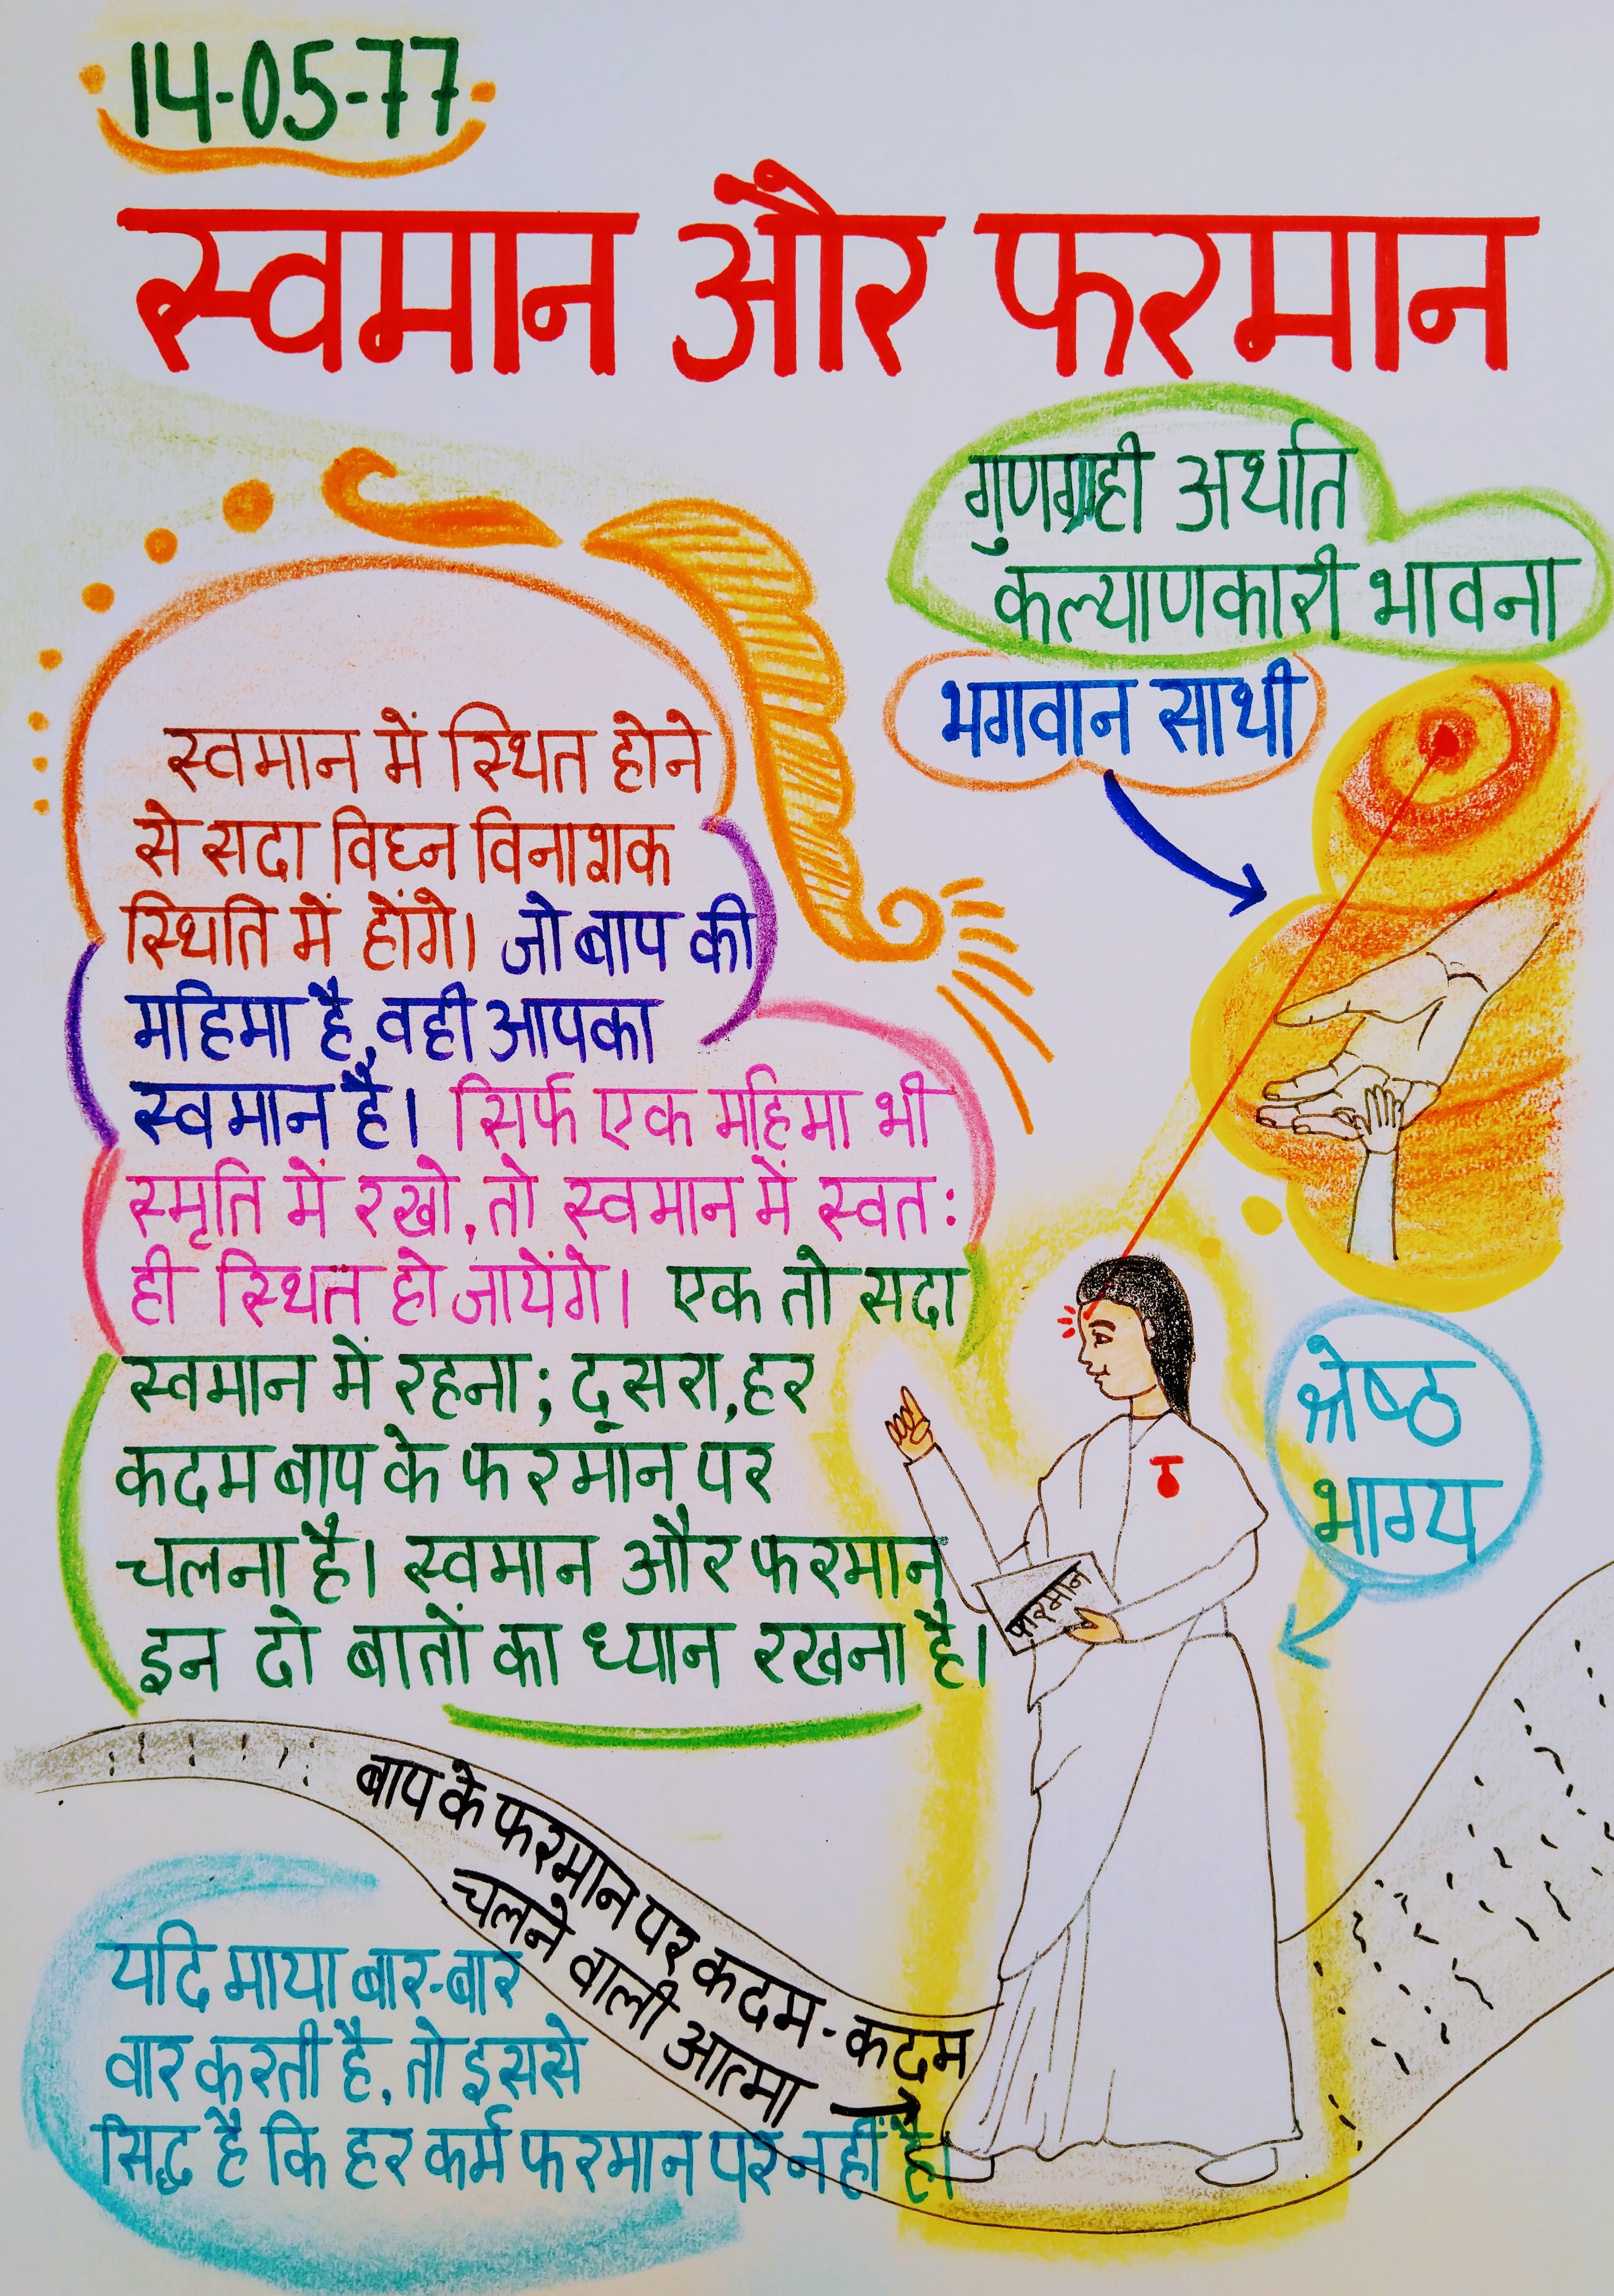 14-05-77
स्वमान और फरमान
गुणग्राही अर्थात
कल्याणकारी भावना
भगवान साथी
स्वमान में स्थित होने
से सदा विघ्न विनाशक
स्थिति में होंगे। जो बाप की
महिमा है, वही आपका
स्वमान है। सिर्फ एक महिमा भी
स्मृति में रखो, तो स्वमान में स्वतः
ही स्थित हो जायेंगे। एक तो सदा
स्वमान में रहना; दूसरा, हर
कदम बाप के फरमान पर
चलना है। स्वमान और फरमान
इन दो बातों का ध्यान रखना है।
श्रेष्ठ
भाग्य
फरमान
बाप के फरमान पर कदम-कदम
चलने वाली आत्मा
यदि माया बार-बार
वार करती है, तो इससे
सिद्ध है कि हर कर्म फरमान पर नहीं है।